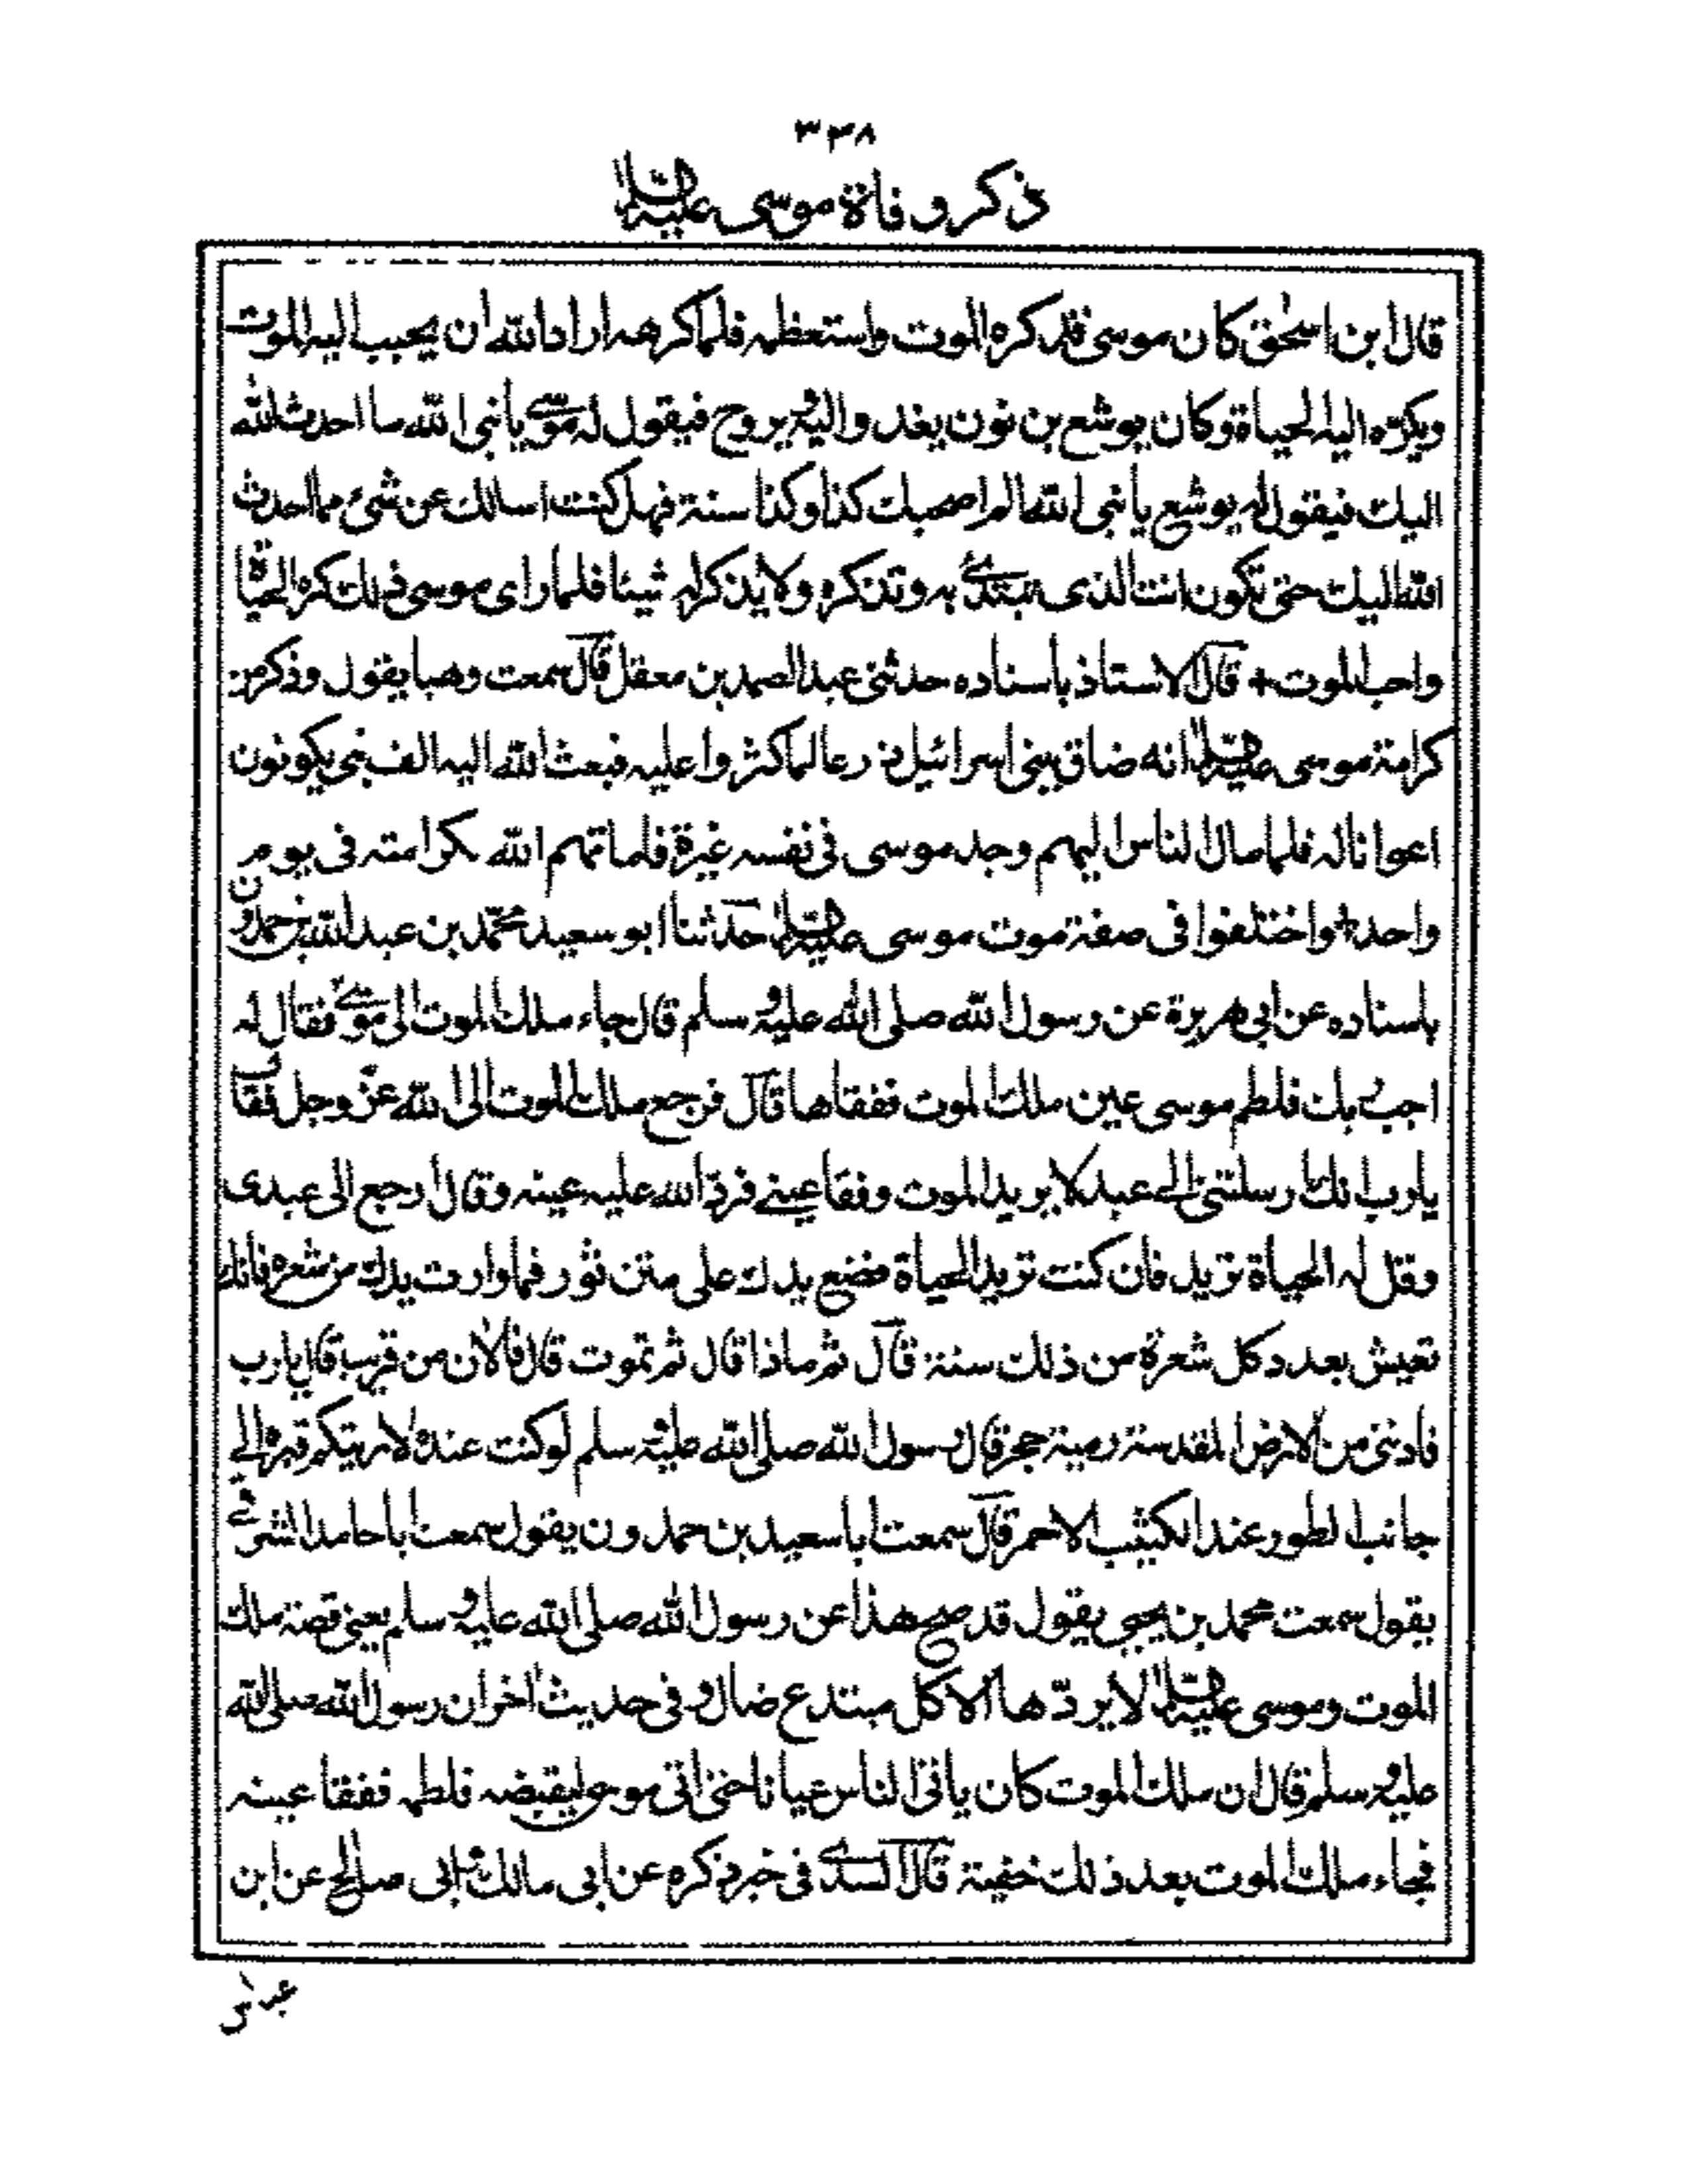 ٣٣٨
ذكر وفاة موسى عليه السلام
قال ابن اسحٰق كان موسى قد كره الموت واستعظمه فلما كرهه اراد الله ان يحبب اليه الموت
ويكرّه اليه الحياة وكان يوشع بن نون يغدو اليه ويروح فيقول له موسى يا نبى الله ما احدث الله
اليك فيقول له يوشع يا نبى الله الم اصحبك كذا وكذا سنة فهل كنت اسالك عن شئ مما احدث
الله اليك حتى تكون انت الذى تبتدئ به وتذكره ولا يذكر له شيئا فلما راى موسى ذلك كره الحياة
واحب الموت + قال الاستاذ باسناده حدثنى عبد الصمد بن معقل قال سمعت وهبا يقول وذكر من
كرامة موسى عليه السلام انه ضاق ببنى اسرائيل ذرعا لما كثروا عليه فبعث الله اليه الف نبى يكونون
اعوانا له فلما مال الناس اليهم وجد موسى فى نفسه غيرة فاماتهم الله بكرامته فى يوم
واحد + واختلفوا فى صفة موت موسى عليه السلام حدّثنا ابو سعيد محمّد بن عبد الله بن حمدون
باسناده عن ابى هريرة عن رسول الله صلى الله عليه وسلم قال جاء ملك الموت الى موسى فقال له
اجب ربك فلطم موسى عين ملك الموت ففقاها قال فرجع ملك الموت الى الله عزّ وجل فقال
يا رب انك ارسلتنى الى عبد لا يريد الموت وفقا عينى فردّ الله عليه عينه وقال ارجع الى عبدى
وقل له الحياة تريد فان كنت تريد الحياة فضع يدك على متن ثور فما وارت يدك من شعره فانك
تعيش بعدد كل شعرة من ذلك سنة قال ثم ماذا قال ثم تموت قال فالاٰن من قريب قال يا رب
فادننى من الارض المقدسة رمية حجر قال رسول الله صلى الله عليه وسلم لو كنت عنده لاريتكم قبره الى
جانب الطور عند الكثيب الاحمر قال سمعت ابا سعيد بن حمدون يقول سمعت ابا حامد الشرقى
يقول سمعت محمد بن يحيى يقول قد صح هذا عن رسول الله صلى الله عليه وسلم يعنى قصة ملك
الموت وموسى عليه السلام لا يردّها الا كل مبتدع ضال وفى حديث اٰخر ان رسول الله صلى الله
عليه وسلم قال ان ملك الموت كان ياتى الناس عيانا حتى اتى موسى ليقبضه فلطمه ففقا عينه
فجاء ملك الموت بعد ذلك خفية قال السدى فى خبر ذكره عن ابى مالك وابى صالح عن ابن